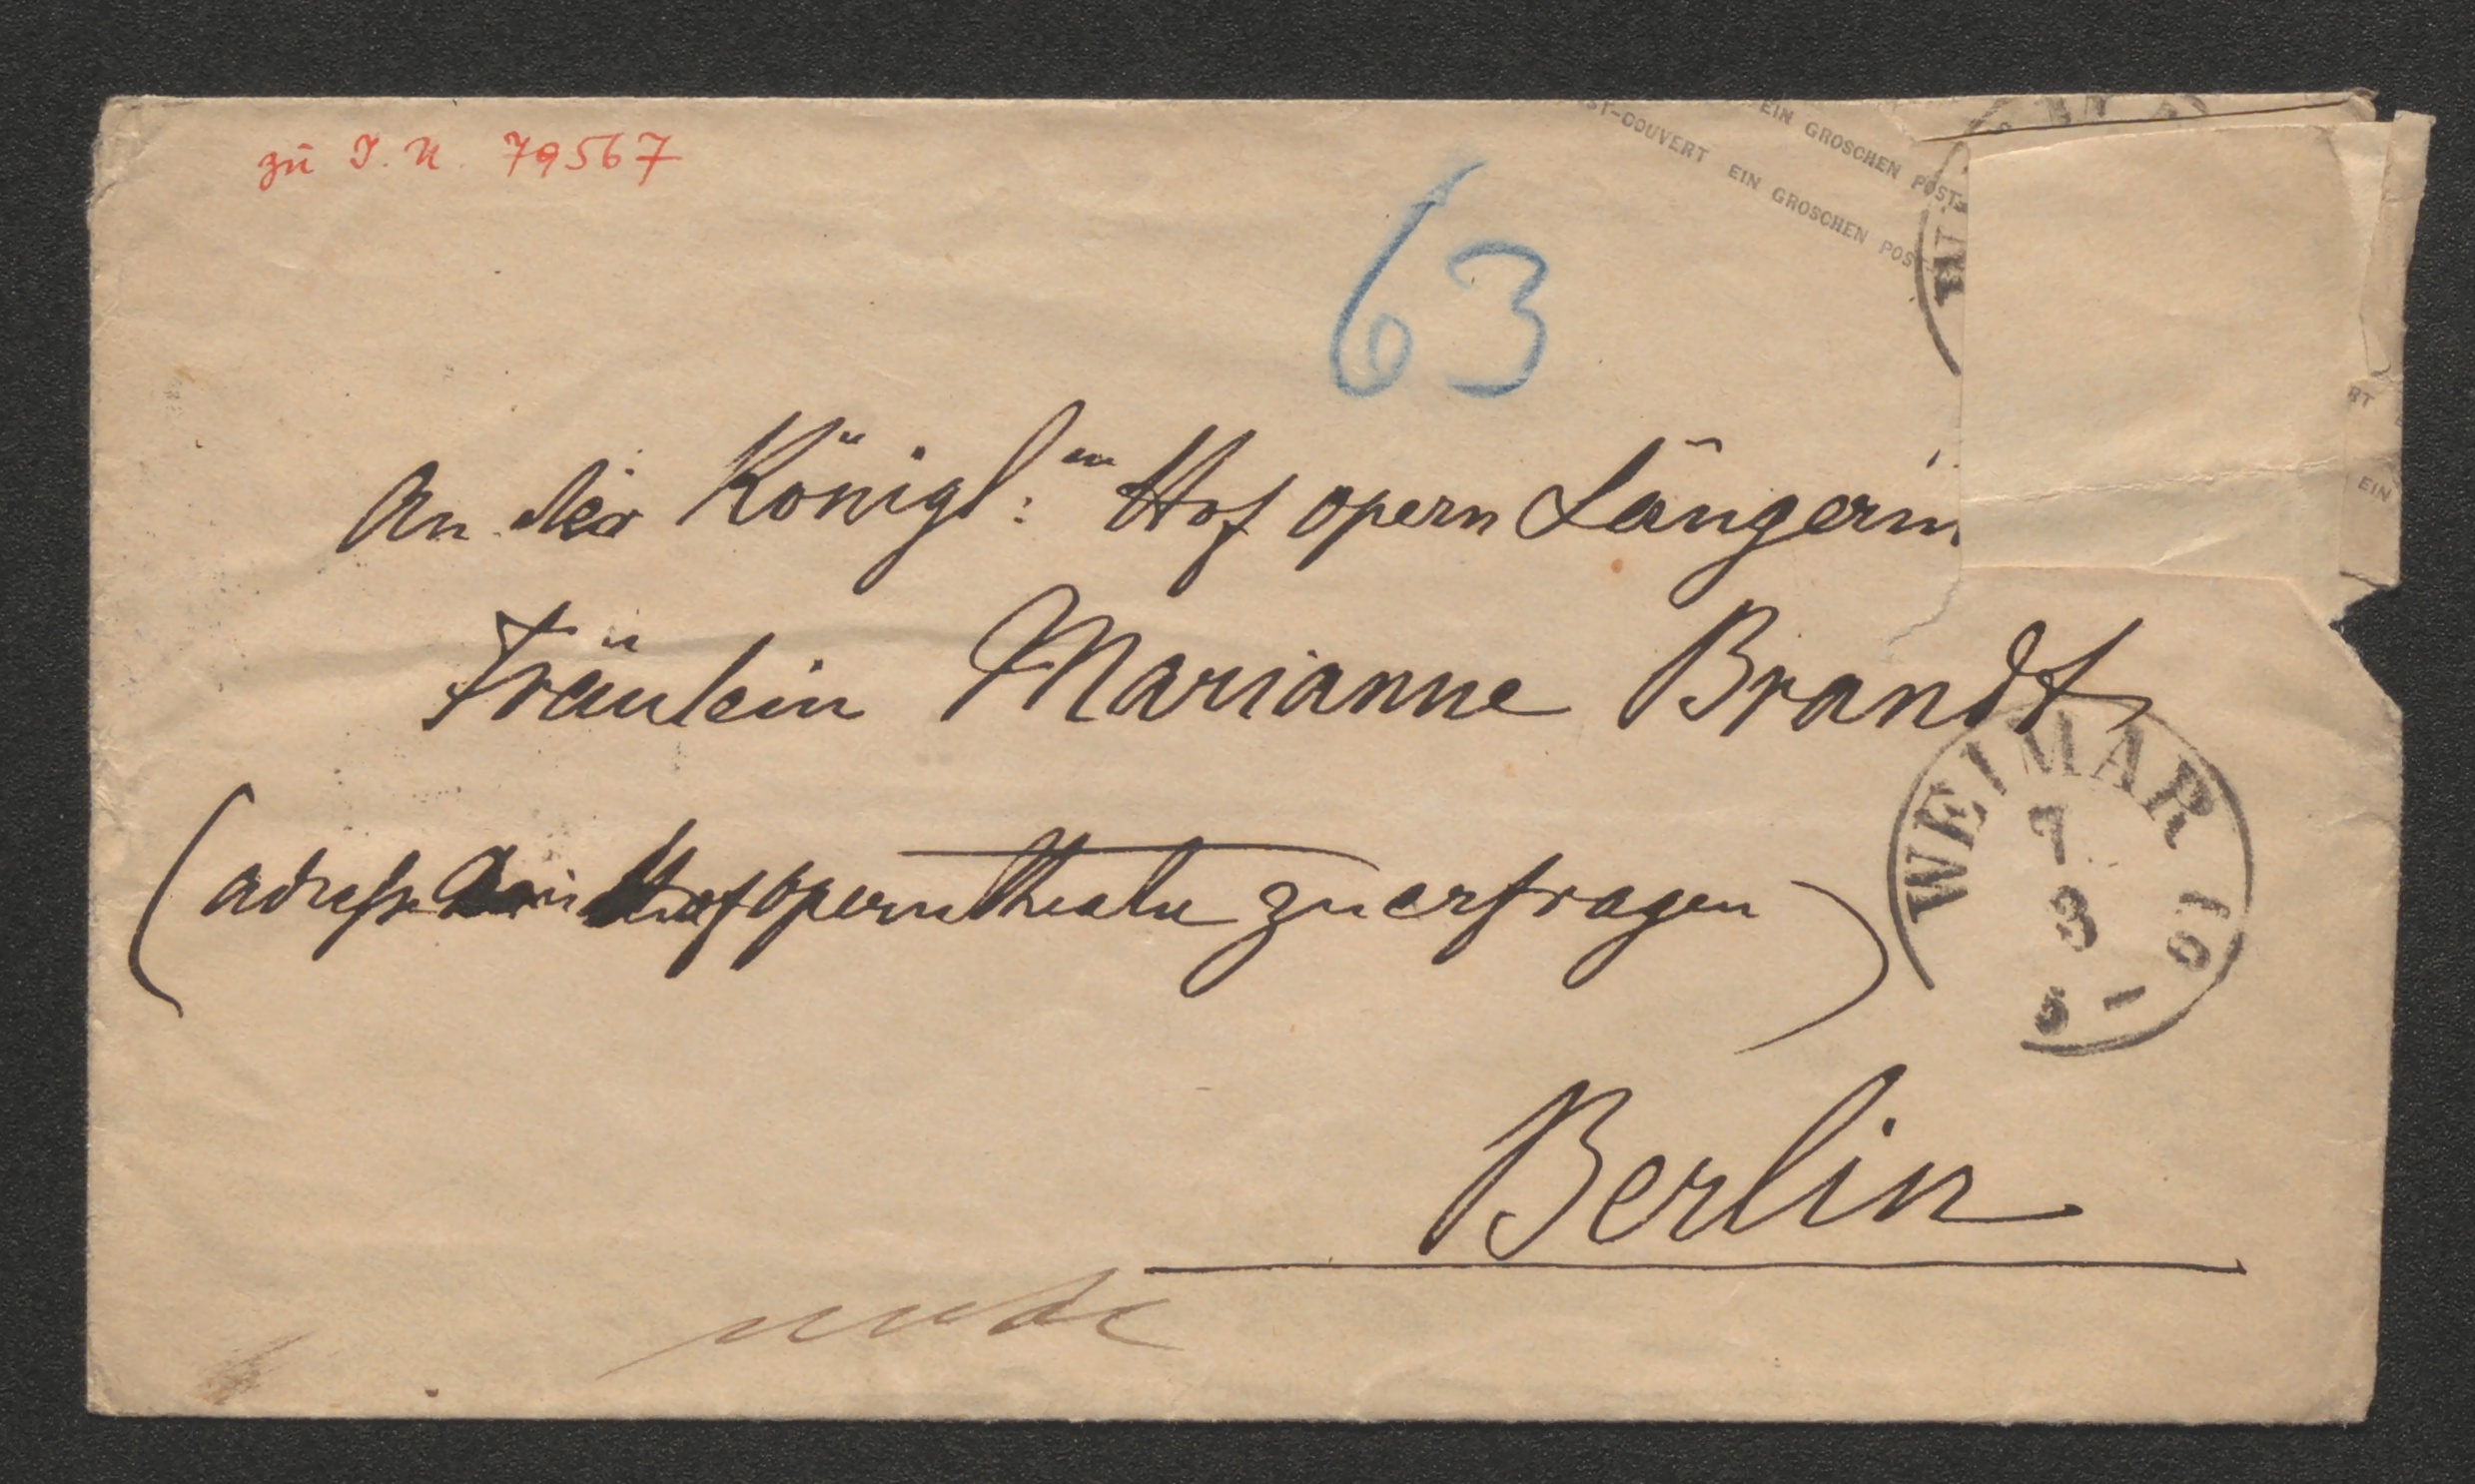 zu I. N. 79567
EIN GROSCHEN POST
ST-COUVERT EIN GROSCHEN POS
63
An die Königl:en Hof opern Sängerin
Fräulein Marianne Brandt
(adresse Hofoperntheater zu erfragen)
WEIMAR
7
3
5 -
Berlin
RT
EIN